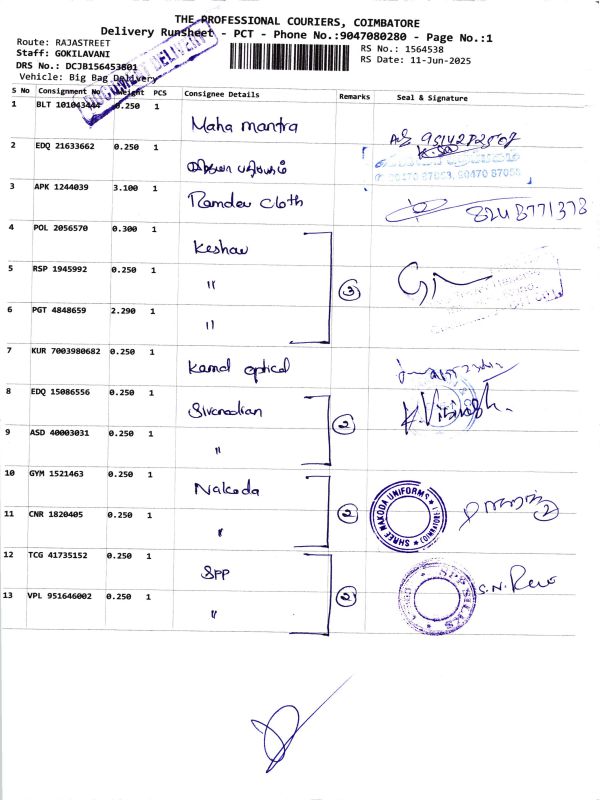 THE PROFESSIONAL COURIERS, COIMBATORE
Delivery Runsheet - PCT - Phone No.:9047080280 - Page No.:1
Route: RAJASTREET
Staff: GOKILAVANI
DRS No.: DCJB156453801
Vehicle: Big Bag Delivery
RS No.: 1564538
RS Date: 11-Jun-2025
DOCUMENT DELIVERY
S No Consignment No Weight PCS Consignee Details Remarks Seal & Signature
1 BLT 101043444 0.250 1 Maha mantra
2 EDQ 21633662 0.250 1
3 APK 1244039 3.100 1 Ramdev Cloth
4 POL 2056570 0.300 1 Keshav
5 RSP 1945992 0.250 1 "
6 PGT 4848659 2.290 1 "
3
7 KUR 7003980682 0.250 1 Kamal optical
8 EDQ 15086556 0.250 1
9 ASD 40003031 0.250 1 "
2
10 GYM 1521463 0.250 1 Nakoda
11 CNR 1820405 0.250 1 "
2 SHREE NAKODA UNIFORMS
12 TCG 41735152 0.250 1 SPP
13 VPL 951646002 0.250 1 "
2